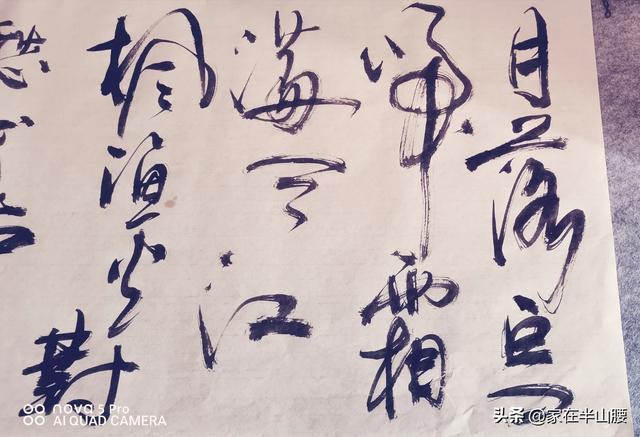 月落烏
啼霜
滿天江
楓漁火對
愁
nova 5 Pro
AI QUAD CAMERA
头条 @家在半山腰